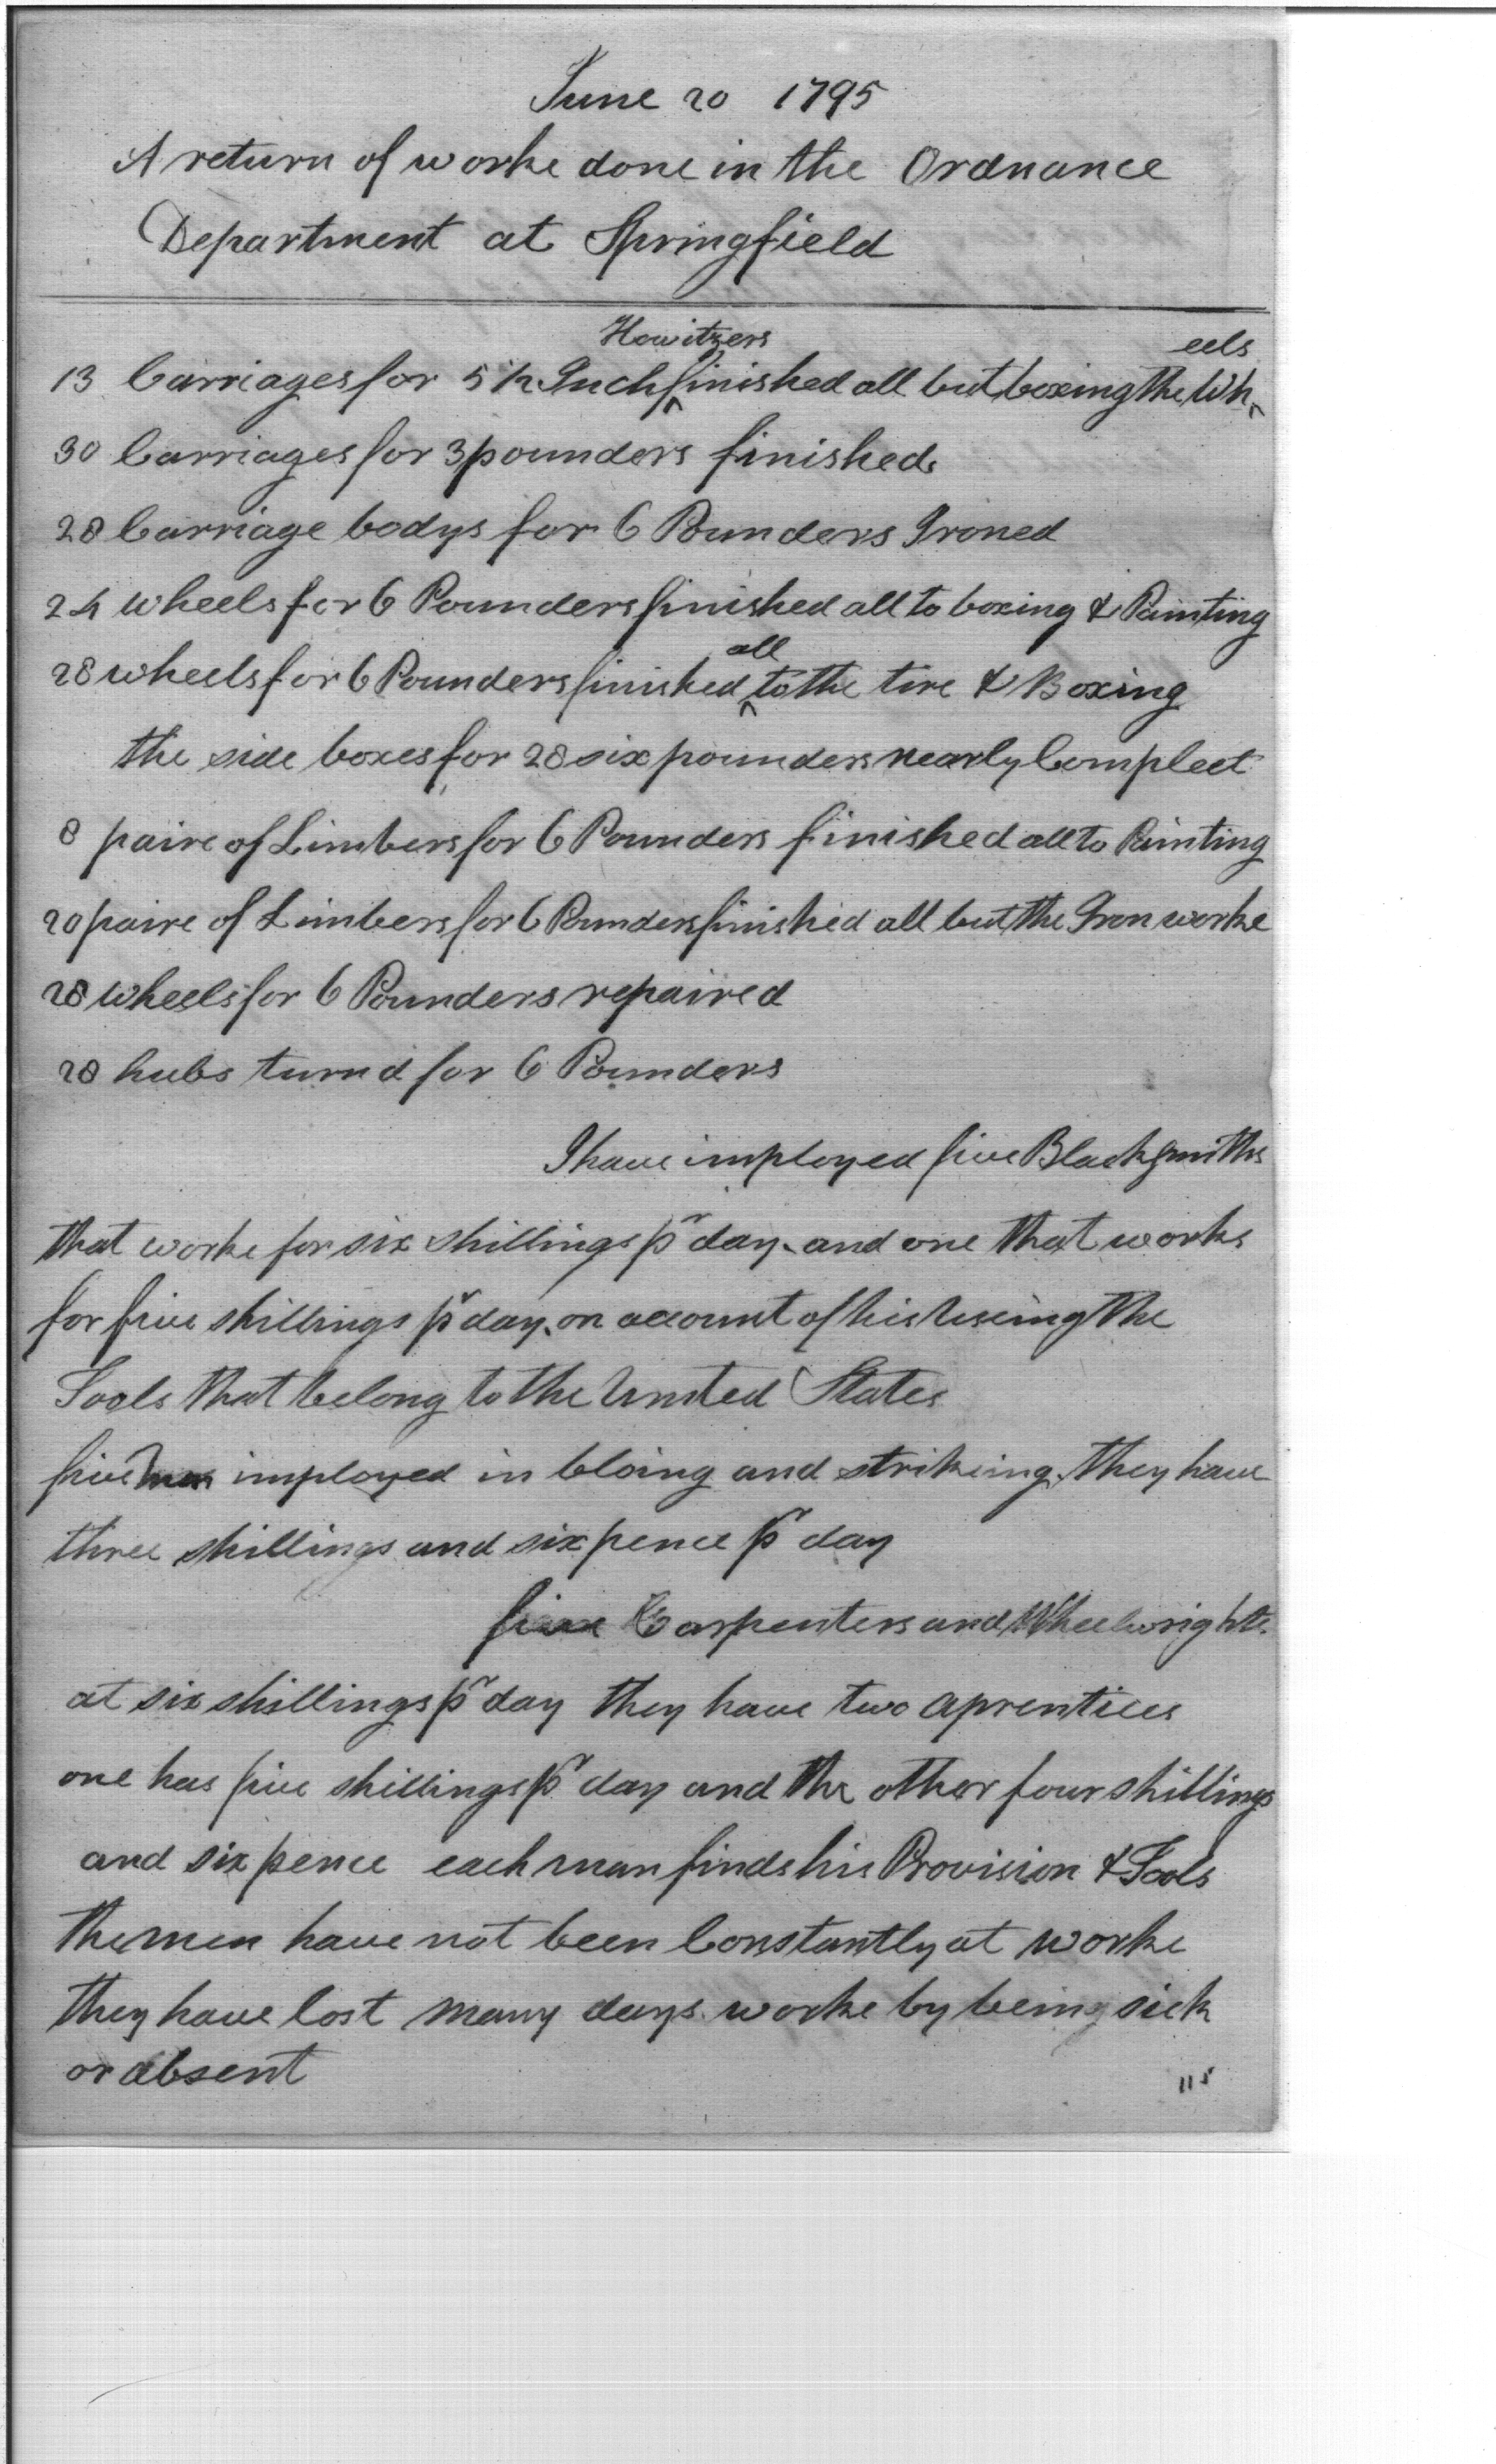 June 20 1795
A return of worke done in the Ordnance
Department at Springfield
Howitzers eels
13 Carriages for 5 1/2 Inch ^ finished all but boxing the Wh^
30 Carriages for 3 pounders finished
28 Carriage bodys for 6 Pounders Ironed
24 wheels for 6 Pounders finished all to boxing & Painting
all
28 wheels for 6 Pounders finished ^ to the tire & Boxing
the side boxes for 28 six pounders nearly Compleet
8 paire of Limbers for 6 Pounders finished all to Painting
20 paire of Limbers for 6 Pounders finished all but the Iron worke
28 wheels for 6 Pounders repaired
28 hubs turnd for 6 Pounders
I have imployed five Blacksmiths
that worke for six shillings pr day and one that works
for five shillings pr day on account of his useing the
Tools that belong to the United States
five men imployed in bloing and strikeing they have
three shillings and six pence pr day
five Carpenters and Wheelwrights
at six shillings pr day they have two aprentices
one has five shillings pr day and the other four shillings
and six pence each man finds his Provision & Tools
the men have not been Constantly at worke
they have lost many days worke by being sick
or absent
115